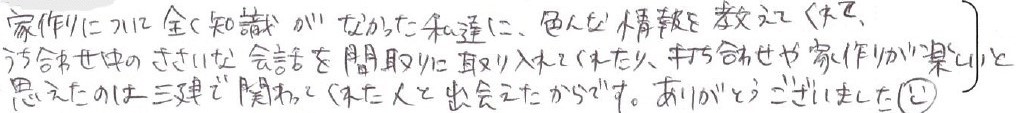 家作りについて全く知識がなかった私達に、色んな情報を教えてくれて、
うち合わせ中のささいな会話を間取りに取り入れてくれたり、打ち合わせや家作りが楽しいと
思えたのは三建で関わってくれた人と出会えたからです。ありがとうございました